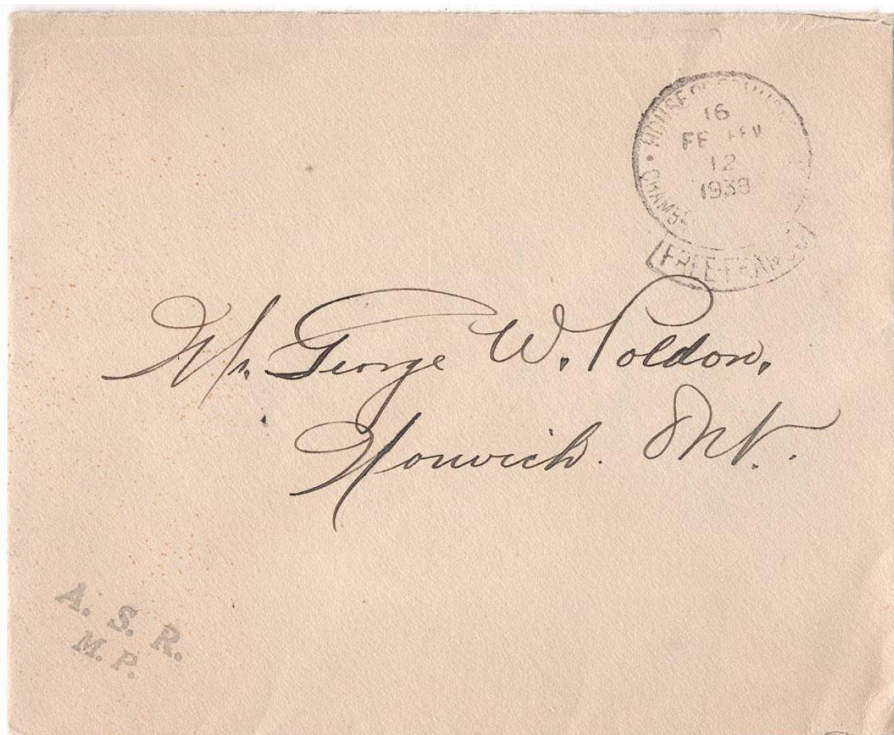 HOUSE OF
16
FE FEV
12
1938
CHAMBRE
FREE-FRANC
Mr. George W. Poldon.
Norwich. Ont.
A. S. R.
M. P.